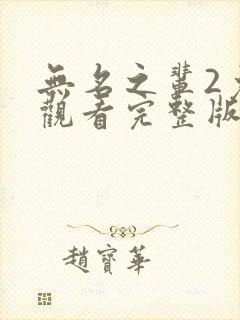 無名之輩2
觀看完整版
趙寶華